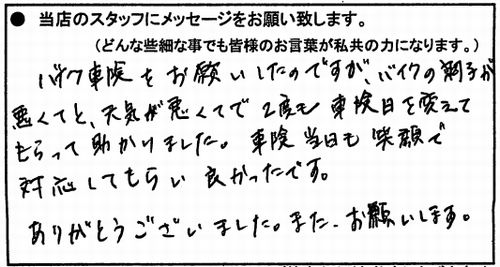 ● 当店のスタッフにメッセージをお願い致します。
（どんな些細な事でも皆様のお言葉が私共の力になります。）
バイク車検をお願いしたのですが、バイクの調子が
悪くてと、天気が悪くてで2度も車検日を変えて
もらって助かりました。車検当日も笑顔で
対応してもらい良かったです。
ありがとうございました。また、お願いします。